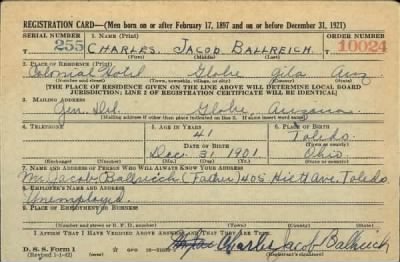 REGISTRATION CARD—(Men born on or after February 17, 1897 and on or before December 31, 1921)
SERIAL NUMBER 1. NAME (Print) ORDER NUMBER
T 255 CHARLES JACOB BALLREICH T 10024
(First) (Middle) (Last)
2. PLACE OF RESIDENCE (Print)
Colonial Hotel Globe Gila Ariz
(Number and street) (Town, township, village, or city) (County) (State)
[THE PLACE OF RESIDENCE GIVEN ON THE LINE ABOVE WILL DETERMINE LOCAL BOARD
JURISDICTION; LINE 2 OF REGISTRATION CERTIFICATE WILL BE IDENTICAL]
3. MAILING ADDRESS
Gen. Del. Globe, Arizona
[Mailing address if other than place indicated on line 2. If same insert word same]
4. TELEPHONE 5. AGE IN YEARS 6. PLACE OF BIRTH
41 Toledo
DATE OF BIRTH (Town or county)
Dec. 31 1901 Ohio
(Exchange) (Number) (Mo.) (Day) (Yr.) (State or country)
7. NAME AND ADDRESS OF PERSON WHO WILL ALWAYS KNOW YOUR ADDRESS
Mr. Jacob Ballreich (Father) 405 Ave. Toledo
8. EMPLOYER'S NAME AND ADDRESS
Unemployed.
9. PLACE OF EMPLOYMENT OR BUSINESS
(Number and street or R. F. D. number) (Town) (County) (State)
I AFFIRM THAT I HAVE VERIFIED ABOVE ANSWERS AND THAT THEY ARE TRUE.
D. S. S. Form 1 Charles Jacob Ballreich
(Revised 1-1-42) (over)